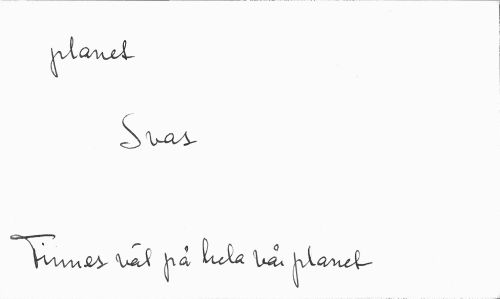 planet
Svas
Finnes väl på hela vår planet